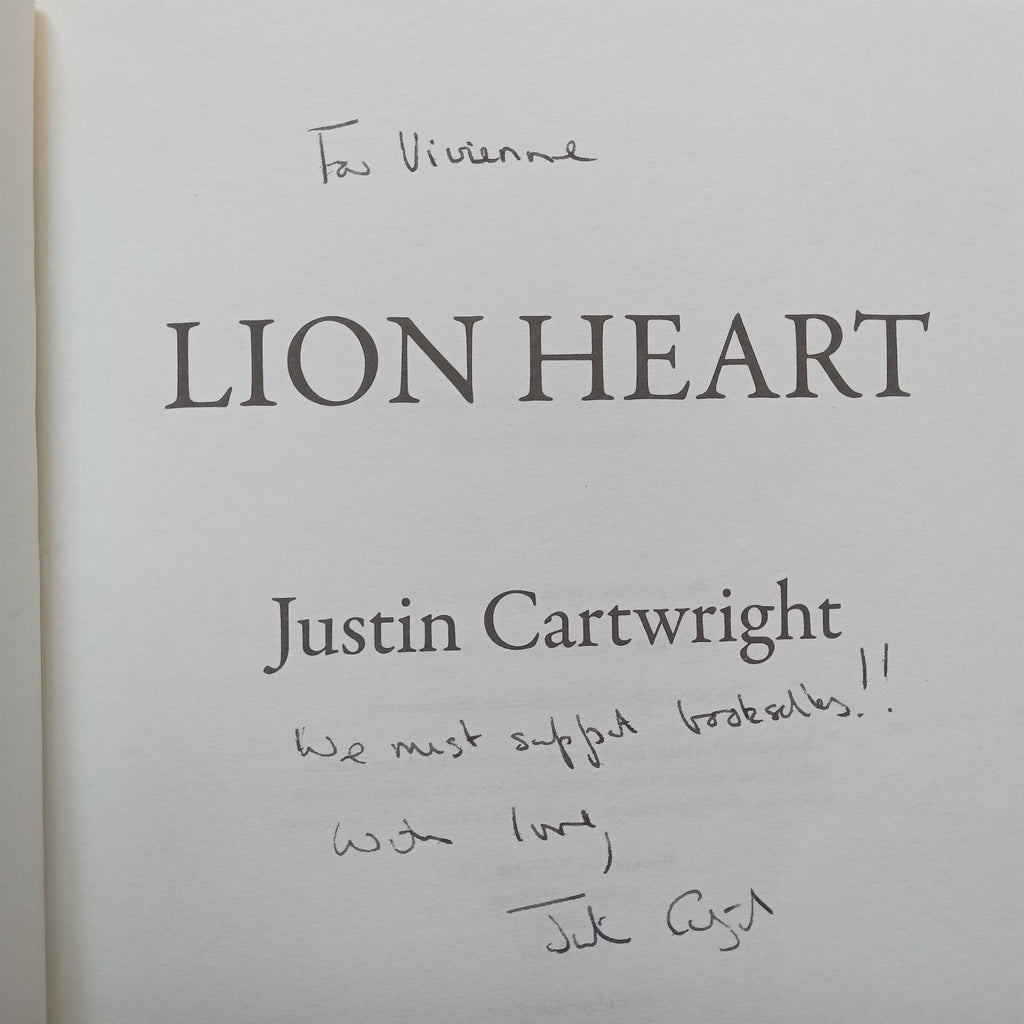 For Vivienne
LION HEART
Justin Cartwright
We must support booksellers!!
With love,
Justin Cartwright